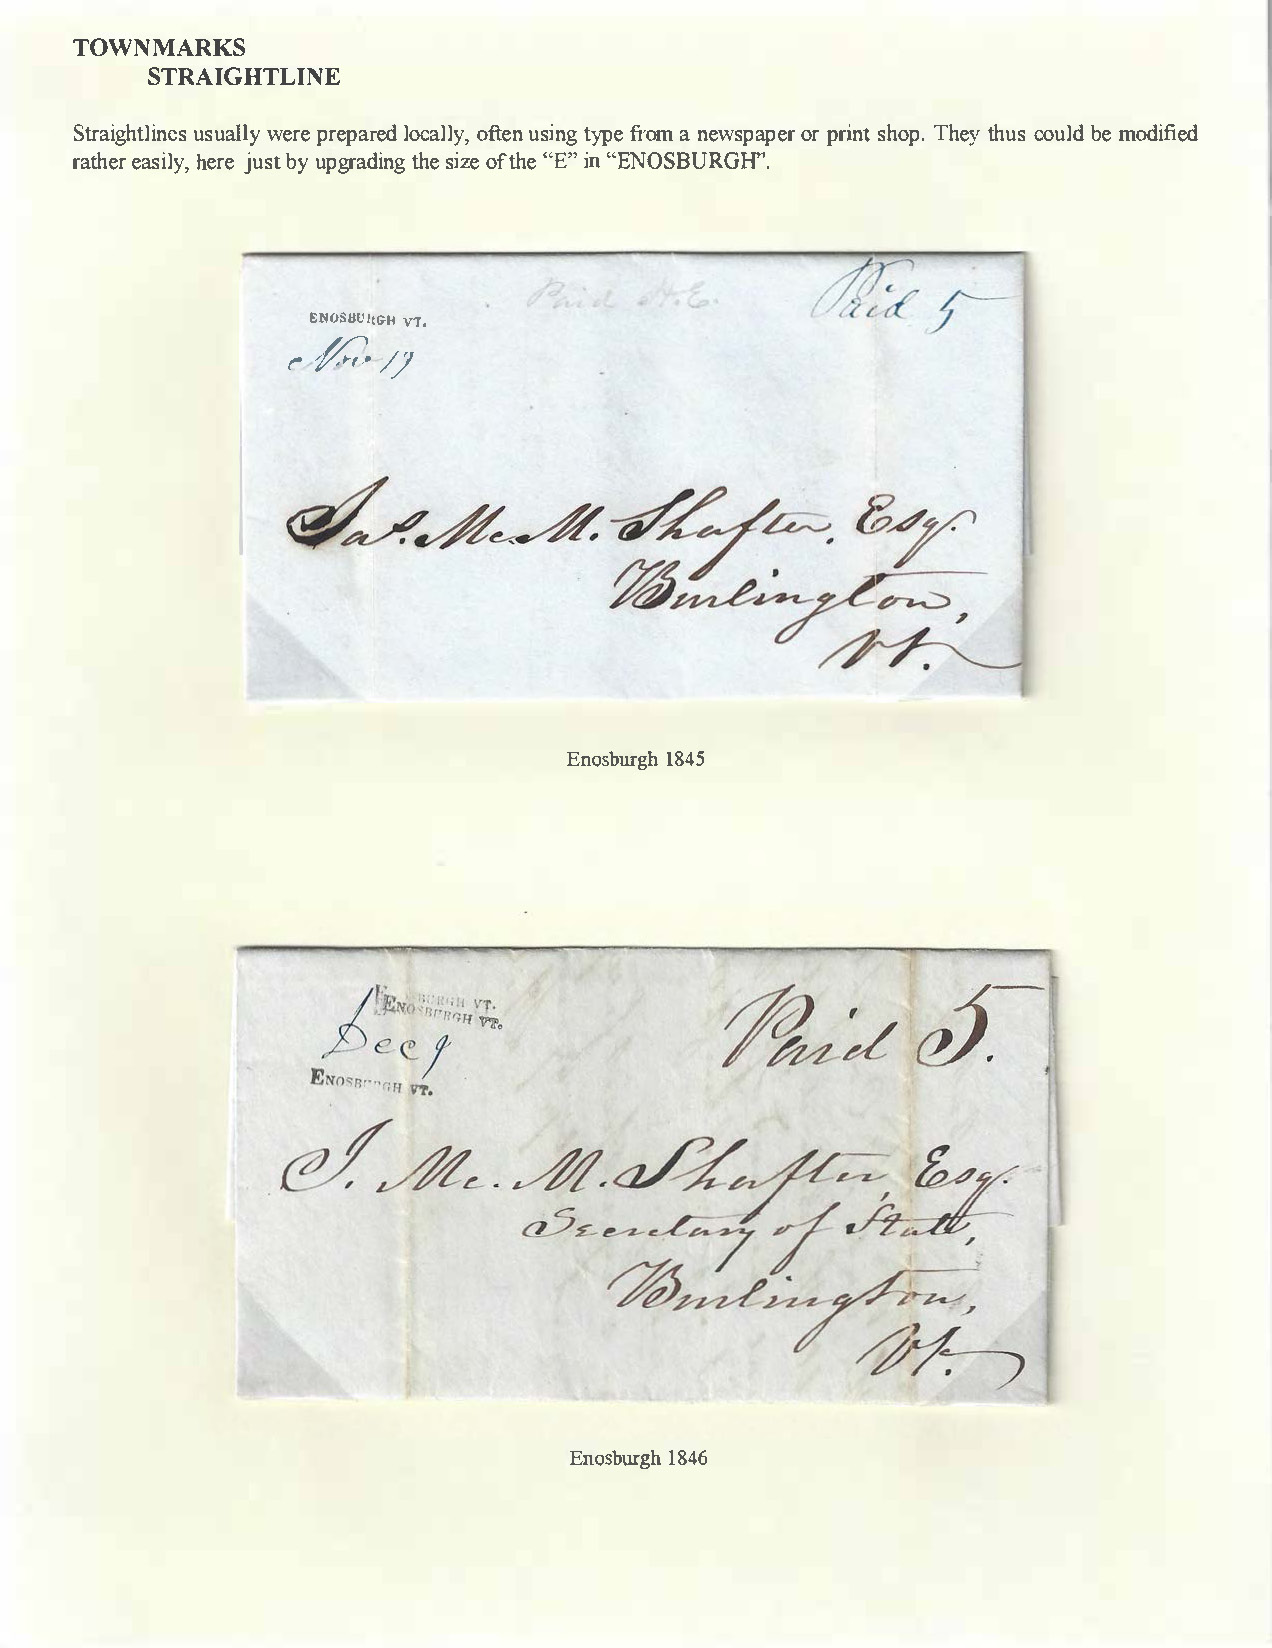 TOWNMARKS
STRAIGHTLINE
Straightlines usually were prepared locally, often using type from a newspaper or print shop. They thus could be modified
rather easily, here just by upgrading the size of the “E” in “ENOSBURGH”.
Paid
Paid 5
ENOSBURGH VT.
Nov 19
Jas. Mc.M. Shafter, Esqr.
Burlington,
Vt.
Enosburgh 1845
BURGH VT.
ENOSBURGH VT.
Dec 9
Paid 5.
ENOSBURGH VT.
J. Mc. M. Shafter, Esqr.
Secretary of State,
Burlington,
Vt.
Enosburgh 1846